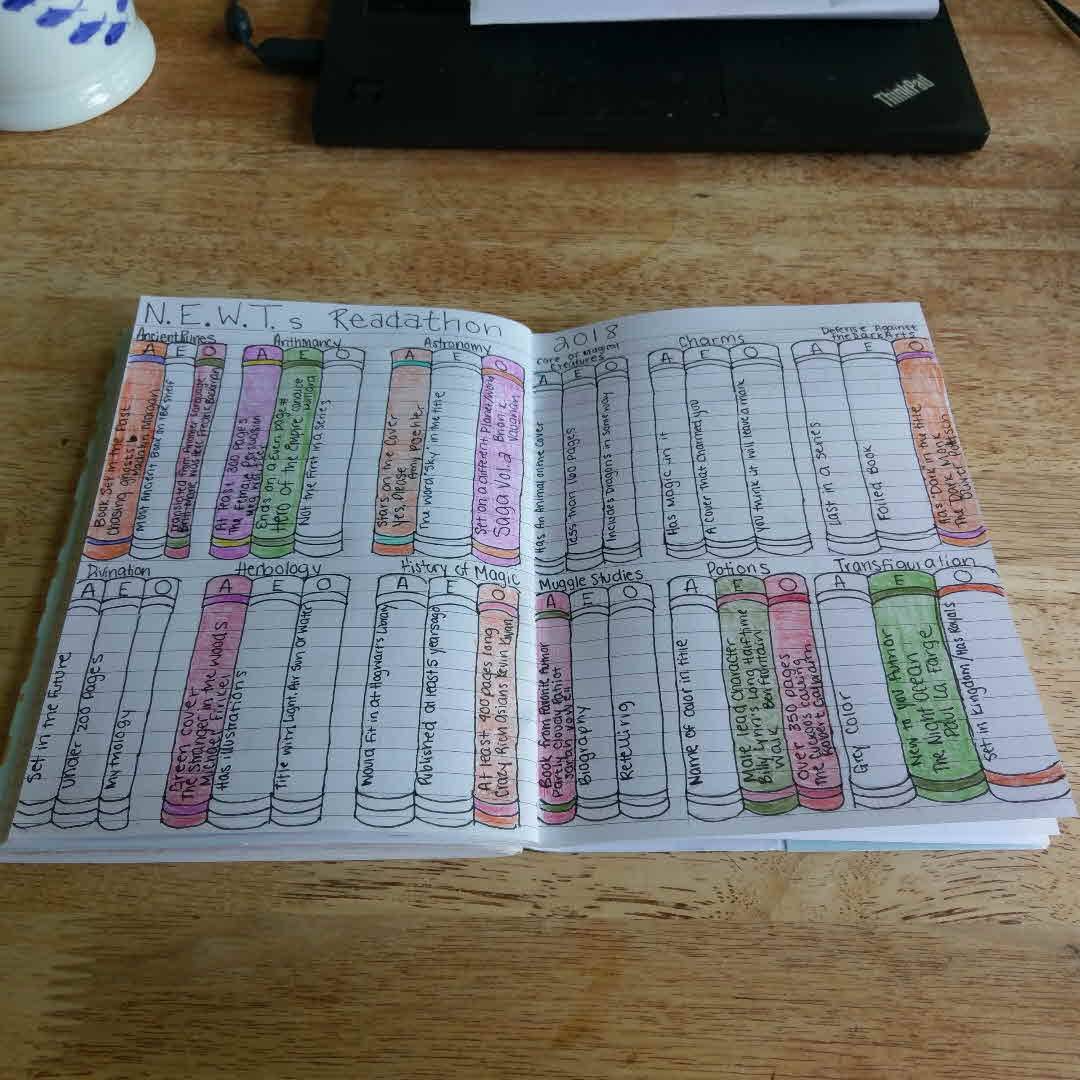 ThinkPad
N.E.W.T.s Readathon
2018
Ancient Runes
A
E
O
Book Set in the Past
Chasing
Madalyn Morgan
Most Ancient Book on the Shelf
Translated from Another Language
Fredrik Backman
Arithmancy
A
E
O
At least 300 Pages
The Female Persuasion
Meg Wolitzer
Ends on a Even page #
Hero of the Empire Candice
Millard
Not the First in a Series
Astronomy
A
E
O
Stars on the Cover
Yes, Please
Amy Poehler
The Word 'Sky' in the title
Set on a different Planet/World
Saga Vol.2 Brian K
Vaughan
Care of Magical
Creatures
A
E
O
Has An Animal on the Cover
Less than 160 pages
Includes Dragons in some way
Charms
A
E
O
Has Magic in it
A Cover that Charmed you
You think it will leave a mark
Defense Against
the Dark Arts
A
E
O
Last in a Series
Foiled Book
Has Dark in the title
The Dark
Divination
A
E
O
Set in the Future
Under 200 Pages
Mythology
Herbology
A
E
O
Green Cover
The Stranger in the Woods
Michael Finkel
Has illustrations
Title with Light Air Sun or Water
History of Magic
A
E
O
Would Fit in at Hogwarts Library
Published at least 5 years ago
At least 400 pages long
Crazy Rich Asians Kevin Kwan
Muggle Studies
A
E
O
Book from Favorite Author
Partly Cloudy Patriot
Sarah Vowell
Biography
Retelling
Potions
A
E
O
Name of color in title
Male lead Character
Billy Lynn's Long Halftime
Walk Ben Fountain
Over 350 pages
The Cuckoos Calling
Robert Galbraith
Transfiguration
A
E
O
Grey Color
New to you Author
The Night Ocean
Paul La Farge
Set in Kingdom/Has Royals